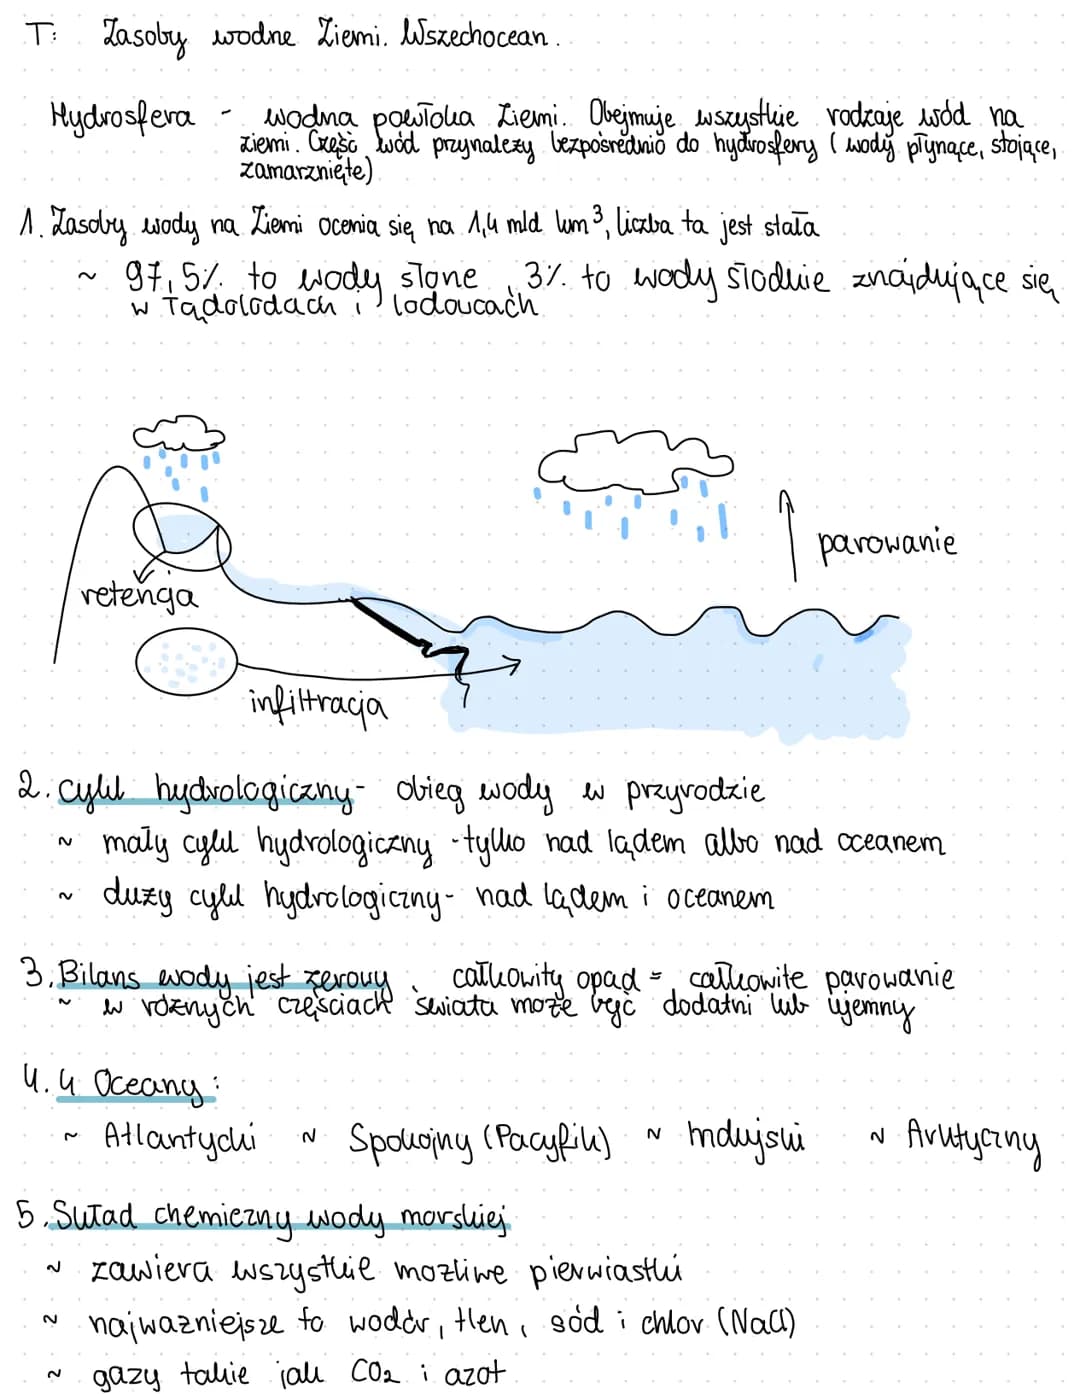 T: Zasoby wodne Ziemi. Wszechocean.
Hydrosfera - wodna powłoka Ziemi. Obejmuje wszystkie rodzaje wód na
ziemi. Część wód przynależy bezpośrednio do hydrosfery (wody płynące, stojące,
zamarznięte)
1. Zasoby wody na Ziemi ocenia się na 1,4 mld km³, liczba ta jest stała
~ 97,5% to wody słone, 3% to wody słodkie znajdujące się
w lądolodach i lodowcach
parowanie
retencja
infiltracja
2. cykl hydrologiczny- obieg wody w przyrodzie
~ mały cykl hydrologiczny -tylko nad lądem albo nad oceanem
~ duży cykl hydrologiczny- nad lądem i oceanem
3. Bilans wody jest zerowy. całkowity opad = całkowite parowanie
~ w różnych częściach świata może być dodatni lub ujemny
4. 4 Oceany:
~ Atlantycki ~ Spokojny (Pacyfik) ~ Indyjski ~ Arktyczny
5. Skład chemiczny wody morskiej
~ zawiera wszystkie możliwe pierwiastki
~ najważniejsze to wodór, tlen, sód i chlor (NaCl)
~ gazy takie jak CO₂ i azot